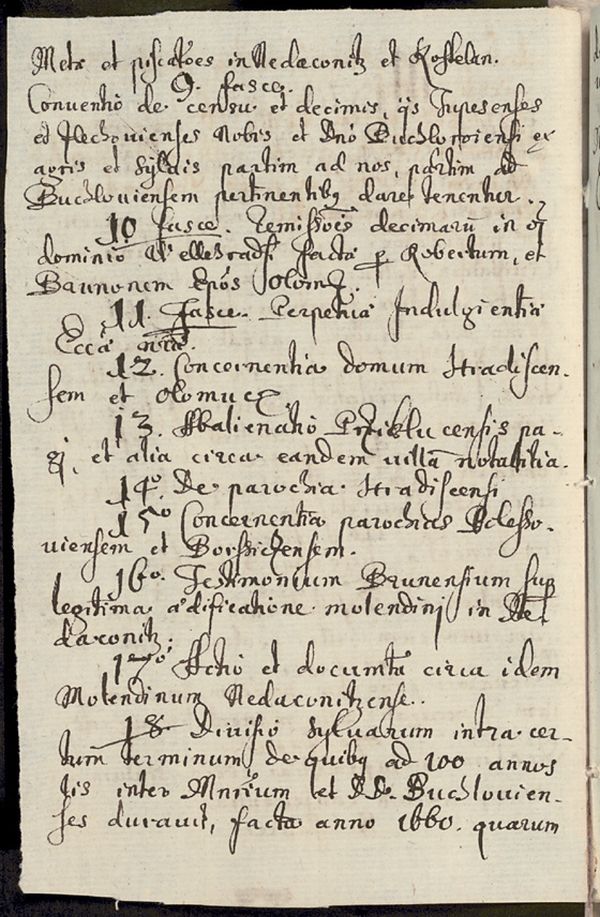 Metæ et piscatões in Nedaconitz et Kostelan.
9. fasce.
Conventiõ de censu et decimis, qs Tupesenses
et Zlechouienses Nobis et Dnõ Buchlouiensi ex
agris et syluis partim ad nos, partim ad
Buchlouiensem pertinentibq dare tenentur.
10 fasce. Remissões decimarũ in
dominio Wellehrads. facta p Robertum, et
Brunonem Epõs Olom.
11. fasce. Perpetua Indulgientia
Eccã nrã.
12. Concernentia domum Hradiscen-
sem et Olomuc.
13. Abalienatiõ Prziklucensis pa-
gi, et alia circa eandem uillã notabilia.
14o. De parochia Hradiscensi
15o Concernentia parochias Polesso-
uiensem et Borssiczensem.
16o. Testimonium Brunensium sup
legitima ædificatione molendinj in Ne-
daconitz.
17o Actio et documta circa idem
Molendinum Nedaconitzense.
18 Diuisiõ syluarum intra cer-
tum terminum, de quibq ad 100 annos
lis inter Mnrium et DD. Buchlouien-
ses durauit, facta anno 1660. quarum